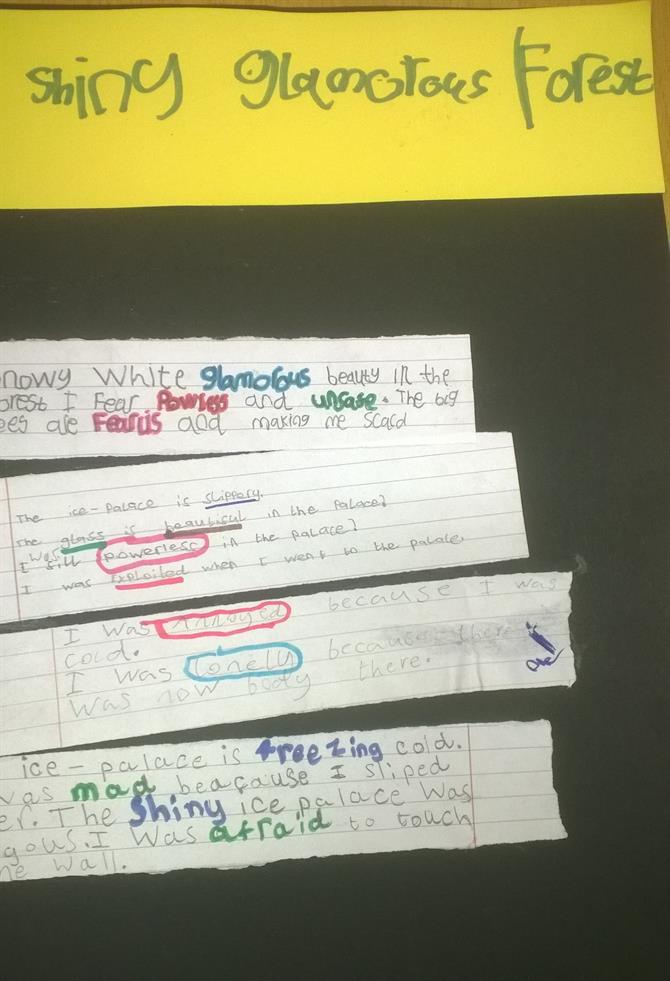 Shiny glamorous Forest
nowy White glamorous beauty in the
orest I Fear Powless and unsafe. The big
ees are Fearis and making me scard
The ice-palace is slippery.
The glass is beautisul in the palace?
I was sill powerlesc in the palace?
I was exploited when I went to the palale
I was Annoyed because I was
cold.
I was lonely because there is
was now body there.
ice-palace is freezing cold.
was mad beacause I sliped
er. The Shiny ice palace was
gous. I was afraid to touch
he wall.